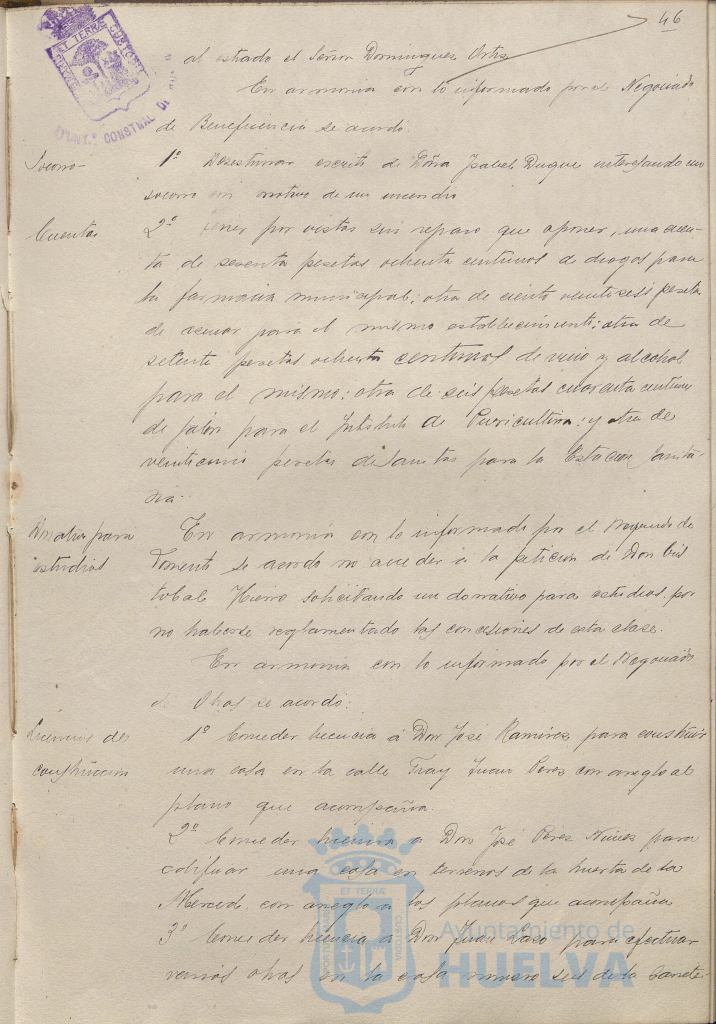 46
al estado el Señor Dominguez Ortiz
En armonia con lo informado por el Negociado
de Beneficencia se acordó.
Socorro
1º Desestimar escrito de Doña Isabel Duque interesando un
socorro con motivo de un incendio
Cuentas
2º Tener por vistas sin reparo que oponer, una cuen-
ta de sesenta pesetas ochenta centimos de drogas para
la farmacia municipal; otra de ciento veintiseis pesetas
de azucar para el mismo establecimiento; otra de
setenta pesetas ochenta centimos de vino y alcohol
para el mismo; otra de seis pesetas cuarenta centimos
de jabon para el Instituto de Puericultura; y otra de
veinticinco pesetas de para la Estacion Sanita-
ria.
Donativo para
estudios
En armonia con lo informado por el Negociado de
Fomento se acordo no acceder a la peticion de Don Cris
tobal Hierro solicitando un donativo para estudios, por
no haberse reglamentado las concesiones de esta clase.
En armonia con lo informado por el Negociado
de Obras se acordó:
Licencias de
construccion
1º Conceder licencia á Don José Ramirez para construir
una casa en la calle Fray Juan Perez con arreglo al
plano que acompaña.
2º Conceder licencia a Don José Perez Nuñez para
edificar una casa en terrenos de la huerta de la
Merced con arreglo a los planos que acompaña
3º Conceder licencia á Don Juan Lazo para efectuar
varias obras en la casa numero seis de la Carrete-
ET TERRÆ
CUSTODIA
AYUNT.º CONSTNAL DE
PORTUS MARIS
ET TERRÆ
CUSTODIA
Ayuntamiento de
HUELVA